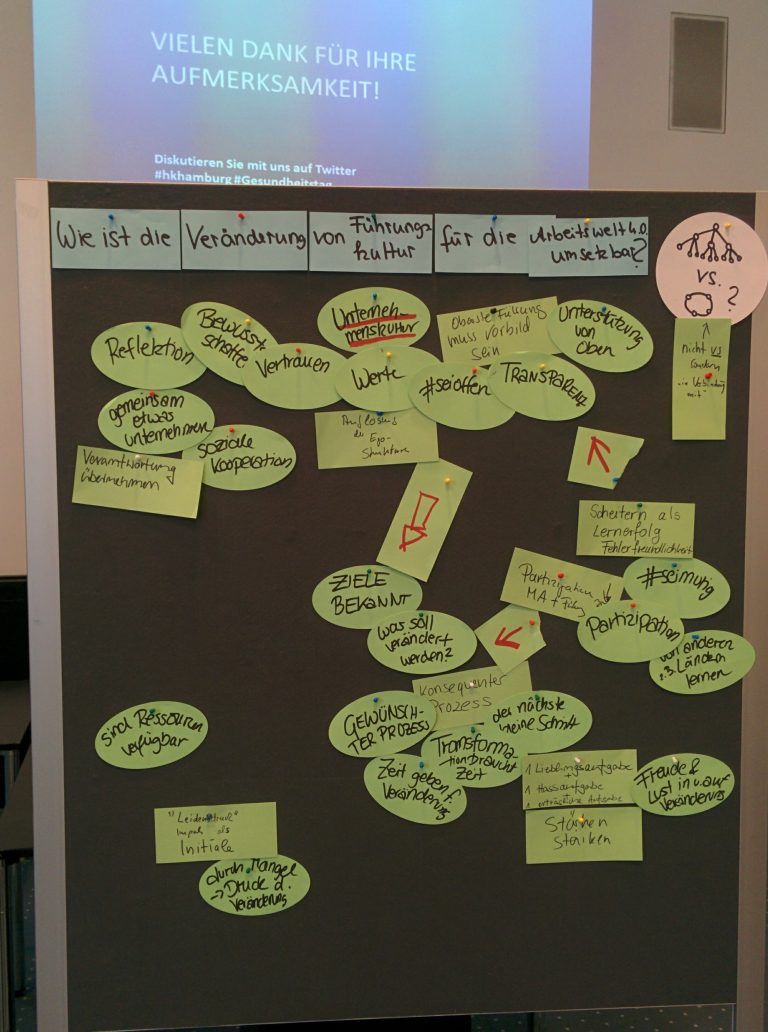 VIELEN DANK FÜR IHRE
AUFMERKSAMKEIT!
Diskutieren Sie mit uns auf Twitter
#hkhamburg #Gesundheitstag
Wie ist die
Veränderung
von Führungs
kultur
für die
Arbeitswelt 4.0
umsetzbar?
vs.
?
nicht vs
sondern
"in Verbindung
mit"
Reflektion
Bewusst-
schaffen
Vertrauen
Unterneh-
menskultur
Werte
Oberste Führung
muss Vorbild
sein
#seioffen
TRANSPARENZ
Unterstützung
von
oben
gemeinsam
etwas
unternehmen
soziale
Kooperation
Verantwortung
übernehmen
Auflösung
der Ego-
Strukturen
Scheitern als
Lernerfolg
Fehlerfreundlichkeit
ZIELE
BEKANNT
was soll
verändert
werden?
Partizipation
MA + Führg
#seimutig
Partizipation
von anderen
z.B. Ländern
lernen
Konsequenter
Prozess
GEWÜNSCH-
TER PROZESS
der nächste
kleine Schritt
Transforma-
tion braucht
Zeit
Zeit geben f.
Veränderung
1 Lieblingsaufgabe
+
1 Hassaufgabe
+
1 erträgliche Aufgabe
Stärken
stärken
Freude &
Lust in u. auf
Veränderung
sind Ressourcen
verfügbar
"Leidensdruck"
Impuls als
Initiale
durch Mangel
→ Druck d.
Veränderung